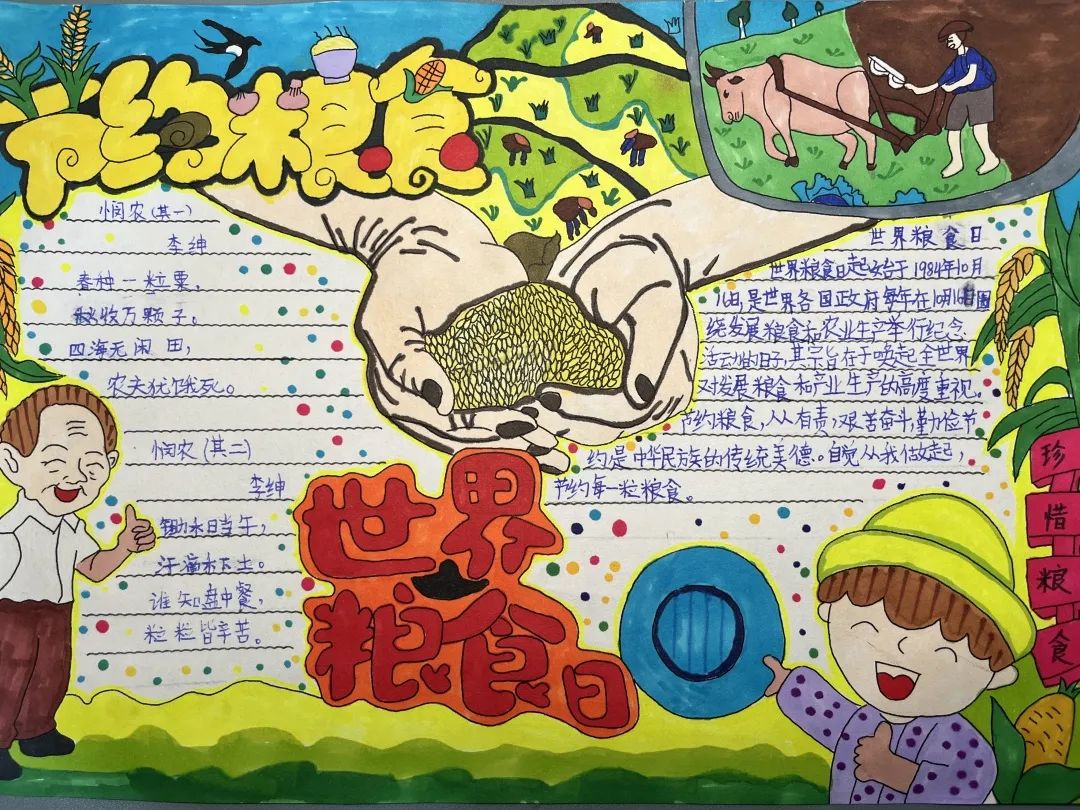 节约粮食
悯农(其一)
李绅
春种一粒粟,
秋收万颗子。
四海无闲田,
农夫犹饿死。
悯农(其二)
李绅
锄禾日当午,
汗滴禾下土。
谁知盘中餐,
粒粒皆辛苦。
世界
粮食日
世界粮食日
世界粮食日起始于1984年10月
是世界各国政府每年在10月16日围
绕发展粮食和农业生产举行纪念
活动的日子,其宗旨在于唤起全世界
对发展粮食和产业生产的高度重视。
节约粮食,人人有责,艰苦奋斗,勤俭节
约是中华民族的传统美德。自觉从我做起,
节约每一粒粮食。
珍
惜
粮
食